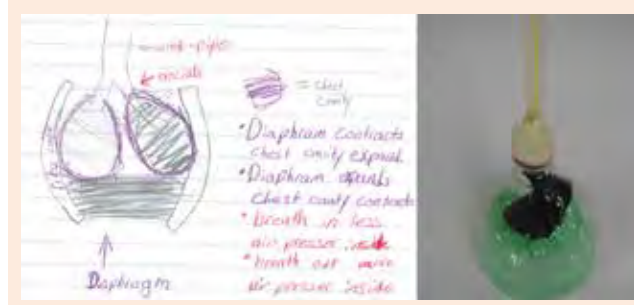 wind-pipe
= chest
cavity
• Diaphram contracts
chest cavity expand.
• Diaphram expands
chest cavity contracts
• breath in less
air presser inside
• breath out more
air presser inside
Daphragm